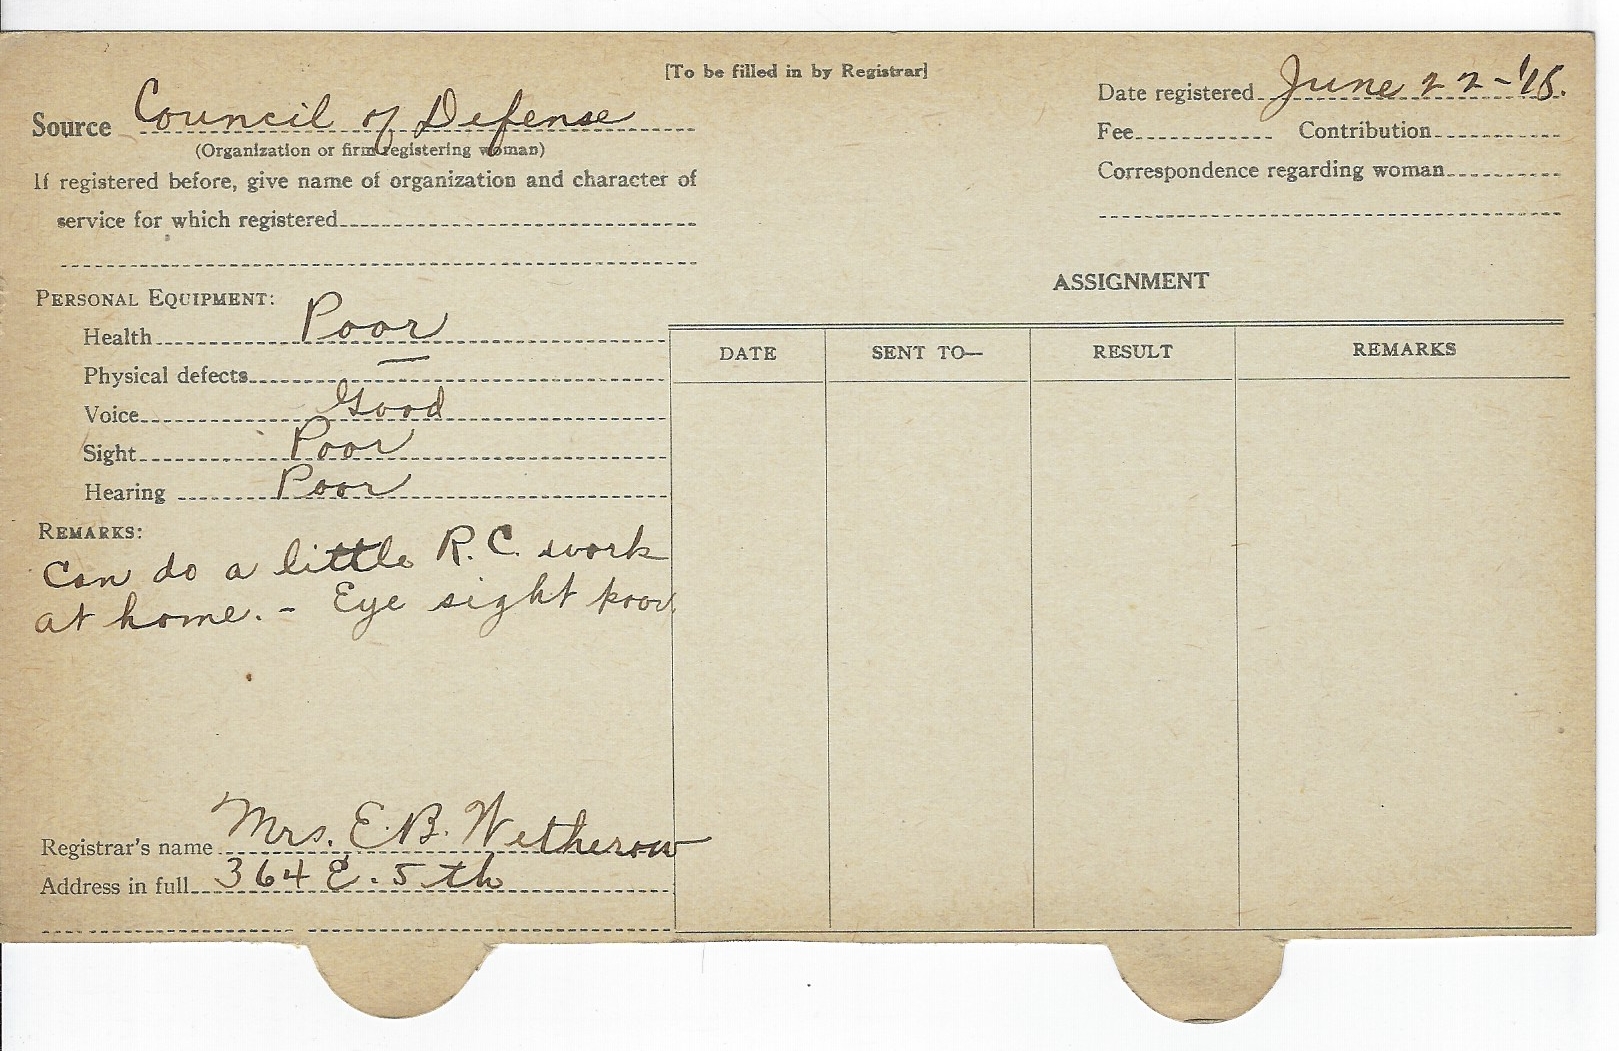 [To be filled in by Registrar]
Source Council of Defense
(Organization or firm registering woman)
If registered before, give name of organization and character of
service for which registered
Date registered June 22-'18.
Fee Contribution
Correspondence regarding woman
PERSONAL EQUIPMENT:
Health Poor
Physical defects —
Voice Good
Sight Poor
Hearing Poor
REMARKS:
Can do a little R.C. work
at home. - Eye sight poor
Registrar's name Mrs. E.B. Wetherow
Address in full 364 E. 5th
ASSIGNMENT
DATE SENT TO— RESULT REMARKS